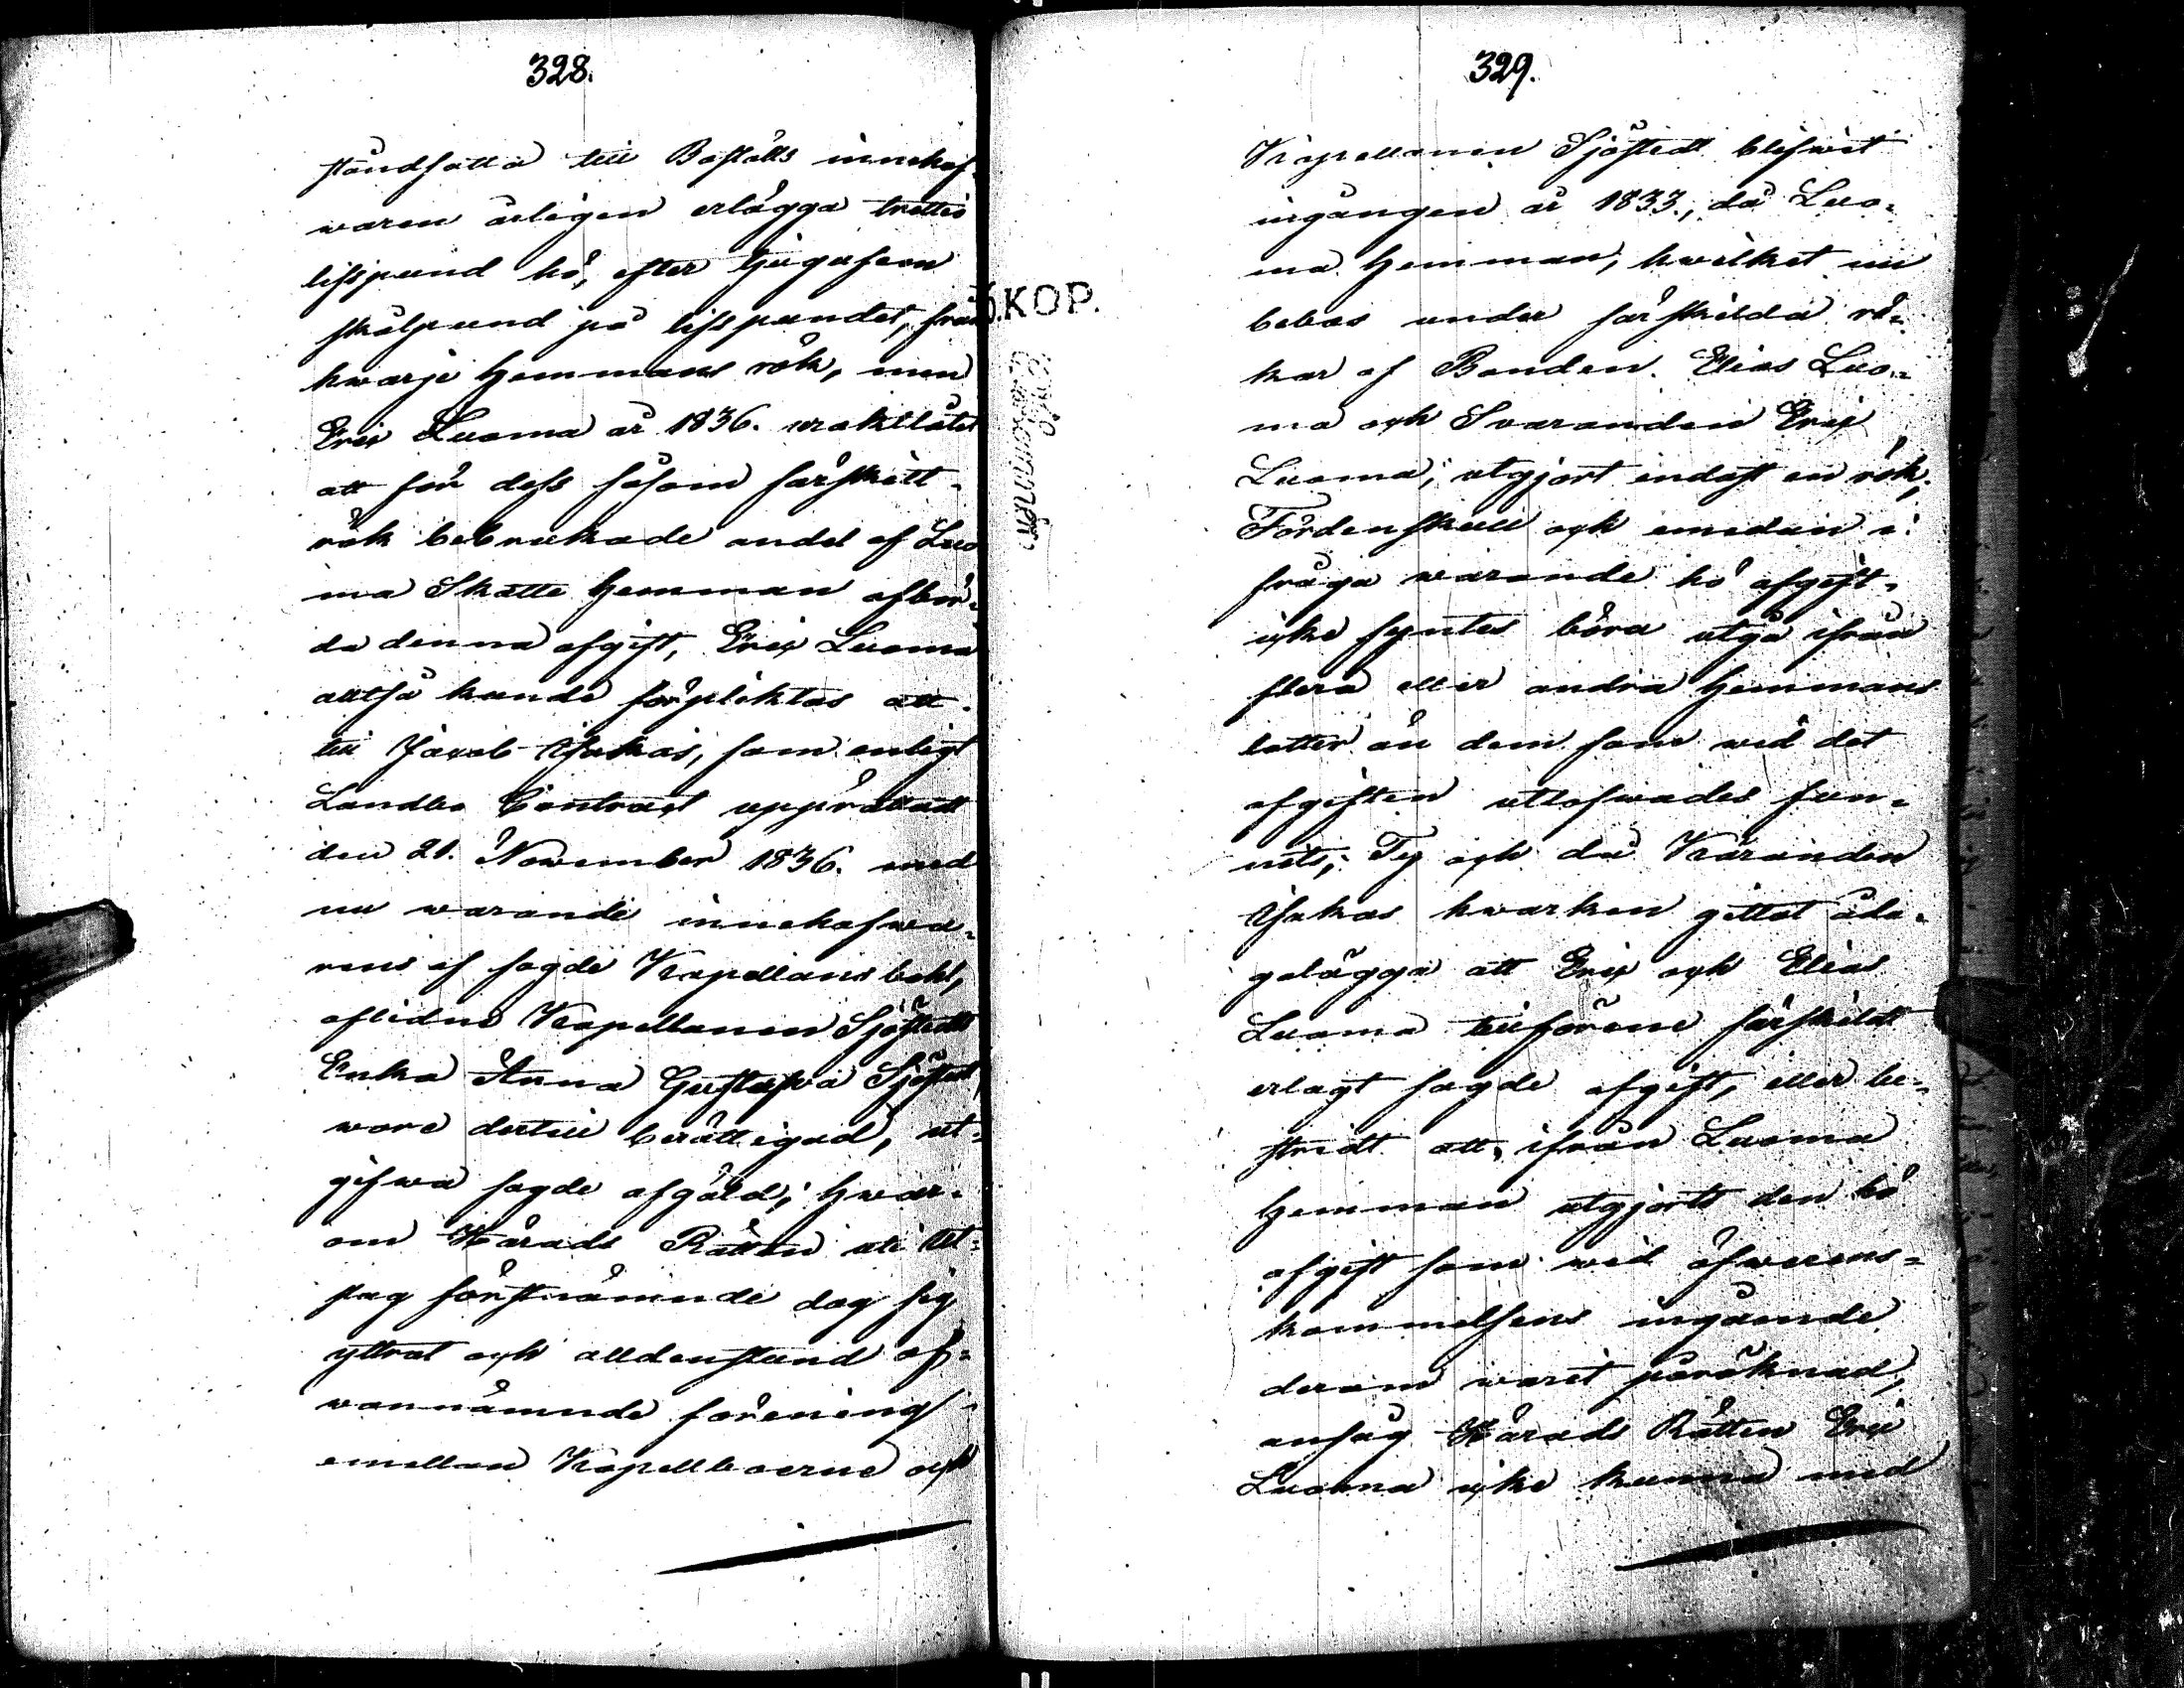 328.
ståndsatta till Boställs innehaf-
waren årligen erlägga trettio
lisspund hö, efter tjugufem
skålpund på lisspundet, från
hwarje Hemmans rök, men
Eric Luoma år 1836. uraktlåtit
att för dess såsom särskilt
rök bebrukade andel af Luo
ma Skatte Hemman afbör-
da denna afgift, Eric Luoma
alltså kunde förpliktas att
till Jacob Ysakas, som enligt
Landbo Contract upprättadt
den 21. November 1836. med
nu warande innehafwa-
rens af sagde Kapellans bohl,
aflidne Kapellanen Sjöstedts
Enka Anna Gustafwa Sjöstedt
wore dertill berättigad, ut-
gifwa sagde afgäld; hwar-
om Härads Rätten uti Ut-
slag förstnämnde dag sig
yttrat och alldenstund of-
wannämnde förening
emellan Kapellboerne och
329.
Kapellanen Sjöstedt blifwit
ingången år 1833., då Luo-
ma Hemman, hwilket nu
bebos under särskilda rö-
kar af Bonden Elias Luo-
ma och Svaranden Eric
Luoma, utgjort endast en rök,
Fördenskull och emedan i
fråga warande hö afgift
icke syntes böra utgå ifrån
flera eller andra Hemmans
lotter än dem som wid det
afgiften utlofwades fun-
nits; Ty och då Käranden
Ysakas hwarken gittat åda-
galägga att Eric och Elias
Luoma tillförene särskildt
erlagt sagde afgift, eller be-
stridt att, ifrån Luoma
Hemman utgjorts den hö
afgift som wid öfwerens-
kommelsens ingående
derom warit påräknad,
ansåg Härads Rätten Eric
Luoma icke kunna med
KOP.